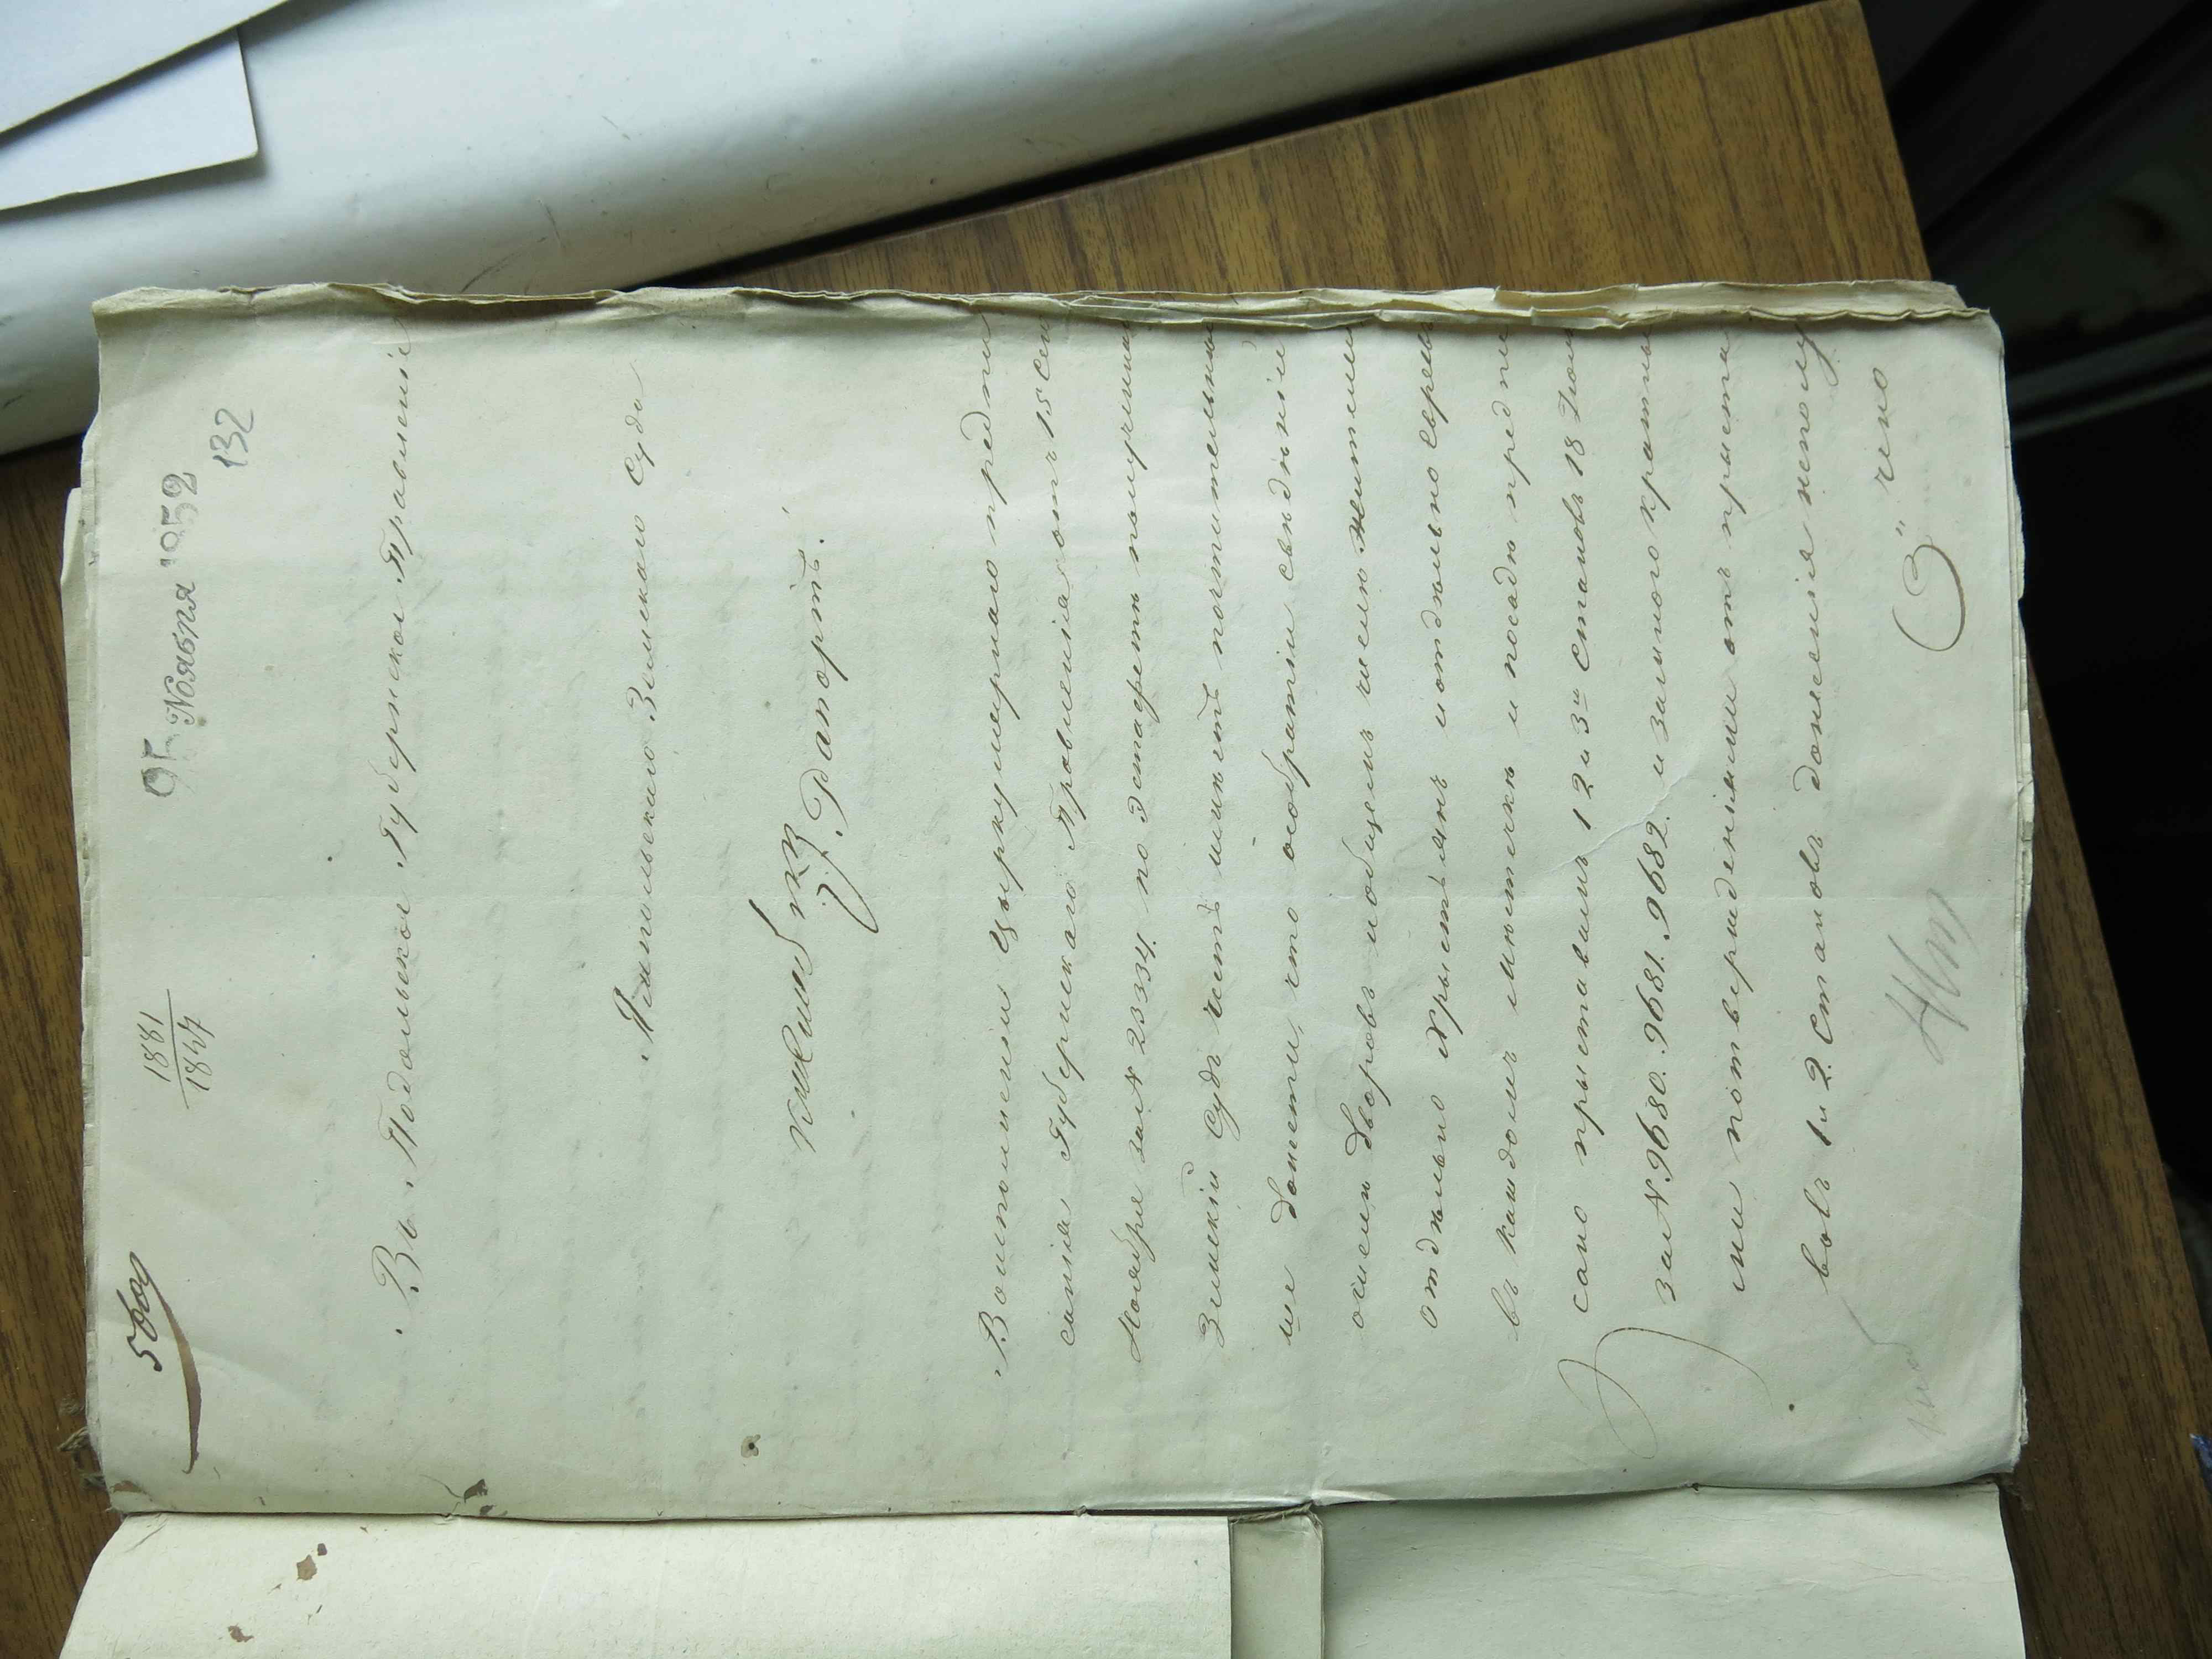 1881
1847
Ноября 1852
132
Въ Подольское Губернское Правленіе
Ямпольскаго Земскаго Суда
Рапортъ.
Во исполненіе Циркулярнаго предпи
санія Губернскаго Правленія отъ 15 сего
Ноября за № 23334. по Эстафетѣ полученна
Земскій Судъ честь имѣетъ почтительнѣй
ше донести, что о собраніи свѣдѣній
о числѣ дворовъ и общемъ числѣ жителей
отдѣльно Хрыстіянъ и отдѣльно евреевъ
въ каждомъ мѣстечкѣ и посадѣ предпи
сано прыставамъ 1 2 и 3й Становъ 18 Іюня
за № 9680. 9681. 9682. и за многократны
ми подтвержденіями отъ прыста
вовъ 1 и 2. Становъ донесенія нетому
чено